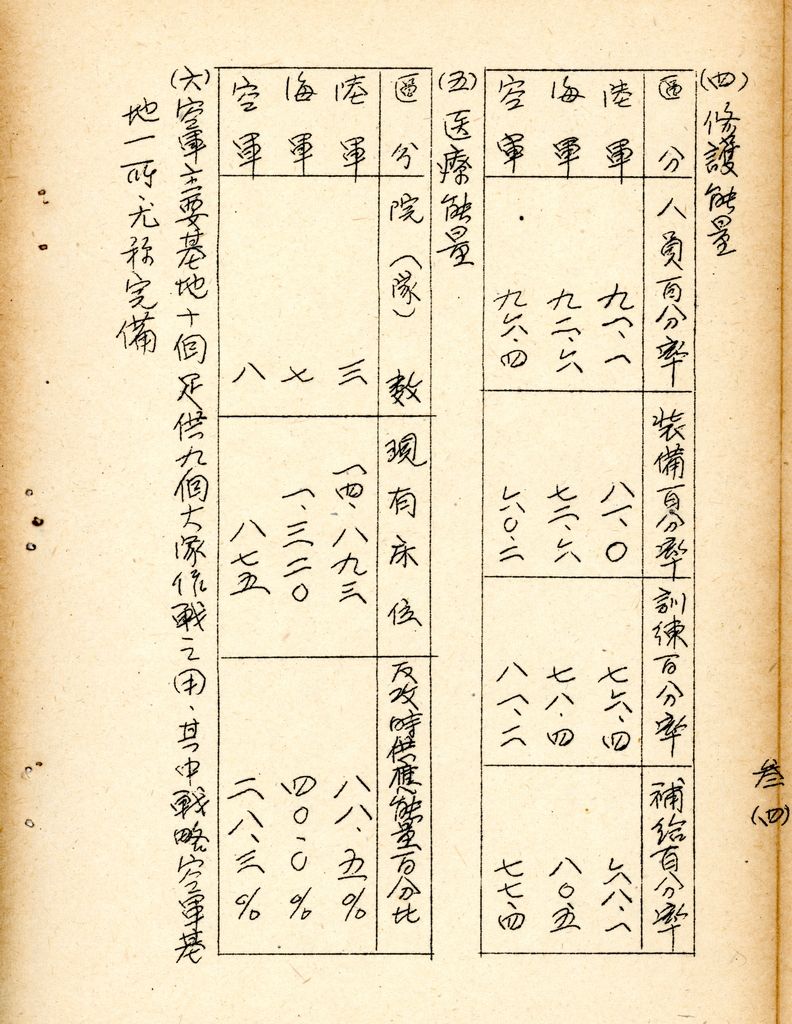 (四)修護能量
區分 人員百分率 裝備百分率 訓練百分率 補給百分率
陸軍 九一.一 八一.〇 七六.四 六八.一
海軍 九二.六 七三.六 七八.四 八〇.五
空軍 九六.四 六〇.二 八一.二 七七.四
(五)医療能量
區分 院(隊)數 現有床位 反攻時供應能量百分比
陸軍 三 一四、八九三 八八.五%
海軍 七 一、三二〇 四〇.〇%
空軍 八 八七五 二八.三%
(六)空軍主要基地十個足供九個大隊作戰之用、其中戰略空軍基
地一所尤称完備
叁(四)